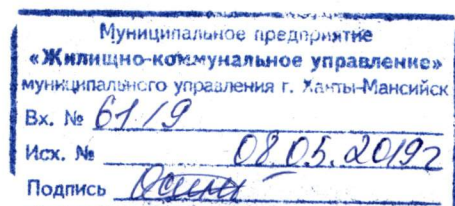 Муниципальное предприятие
«Жилищно-коммунальное управление»
муниципального управления г. Ханты-Мансийск
Вх. № 61/9
Исх. № 08.05.2019г
Подпись